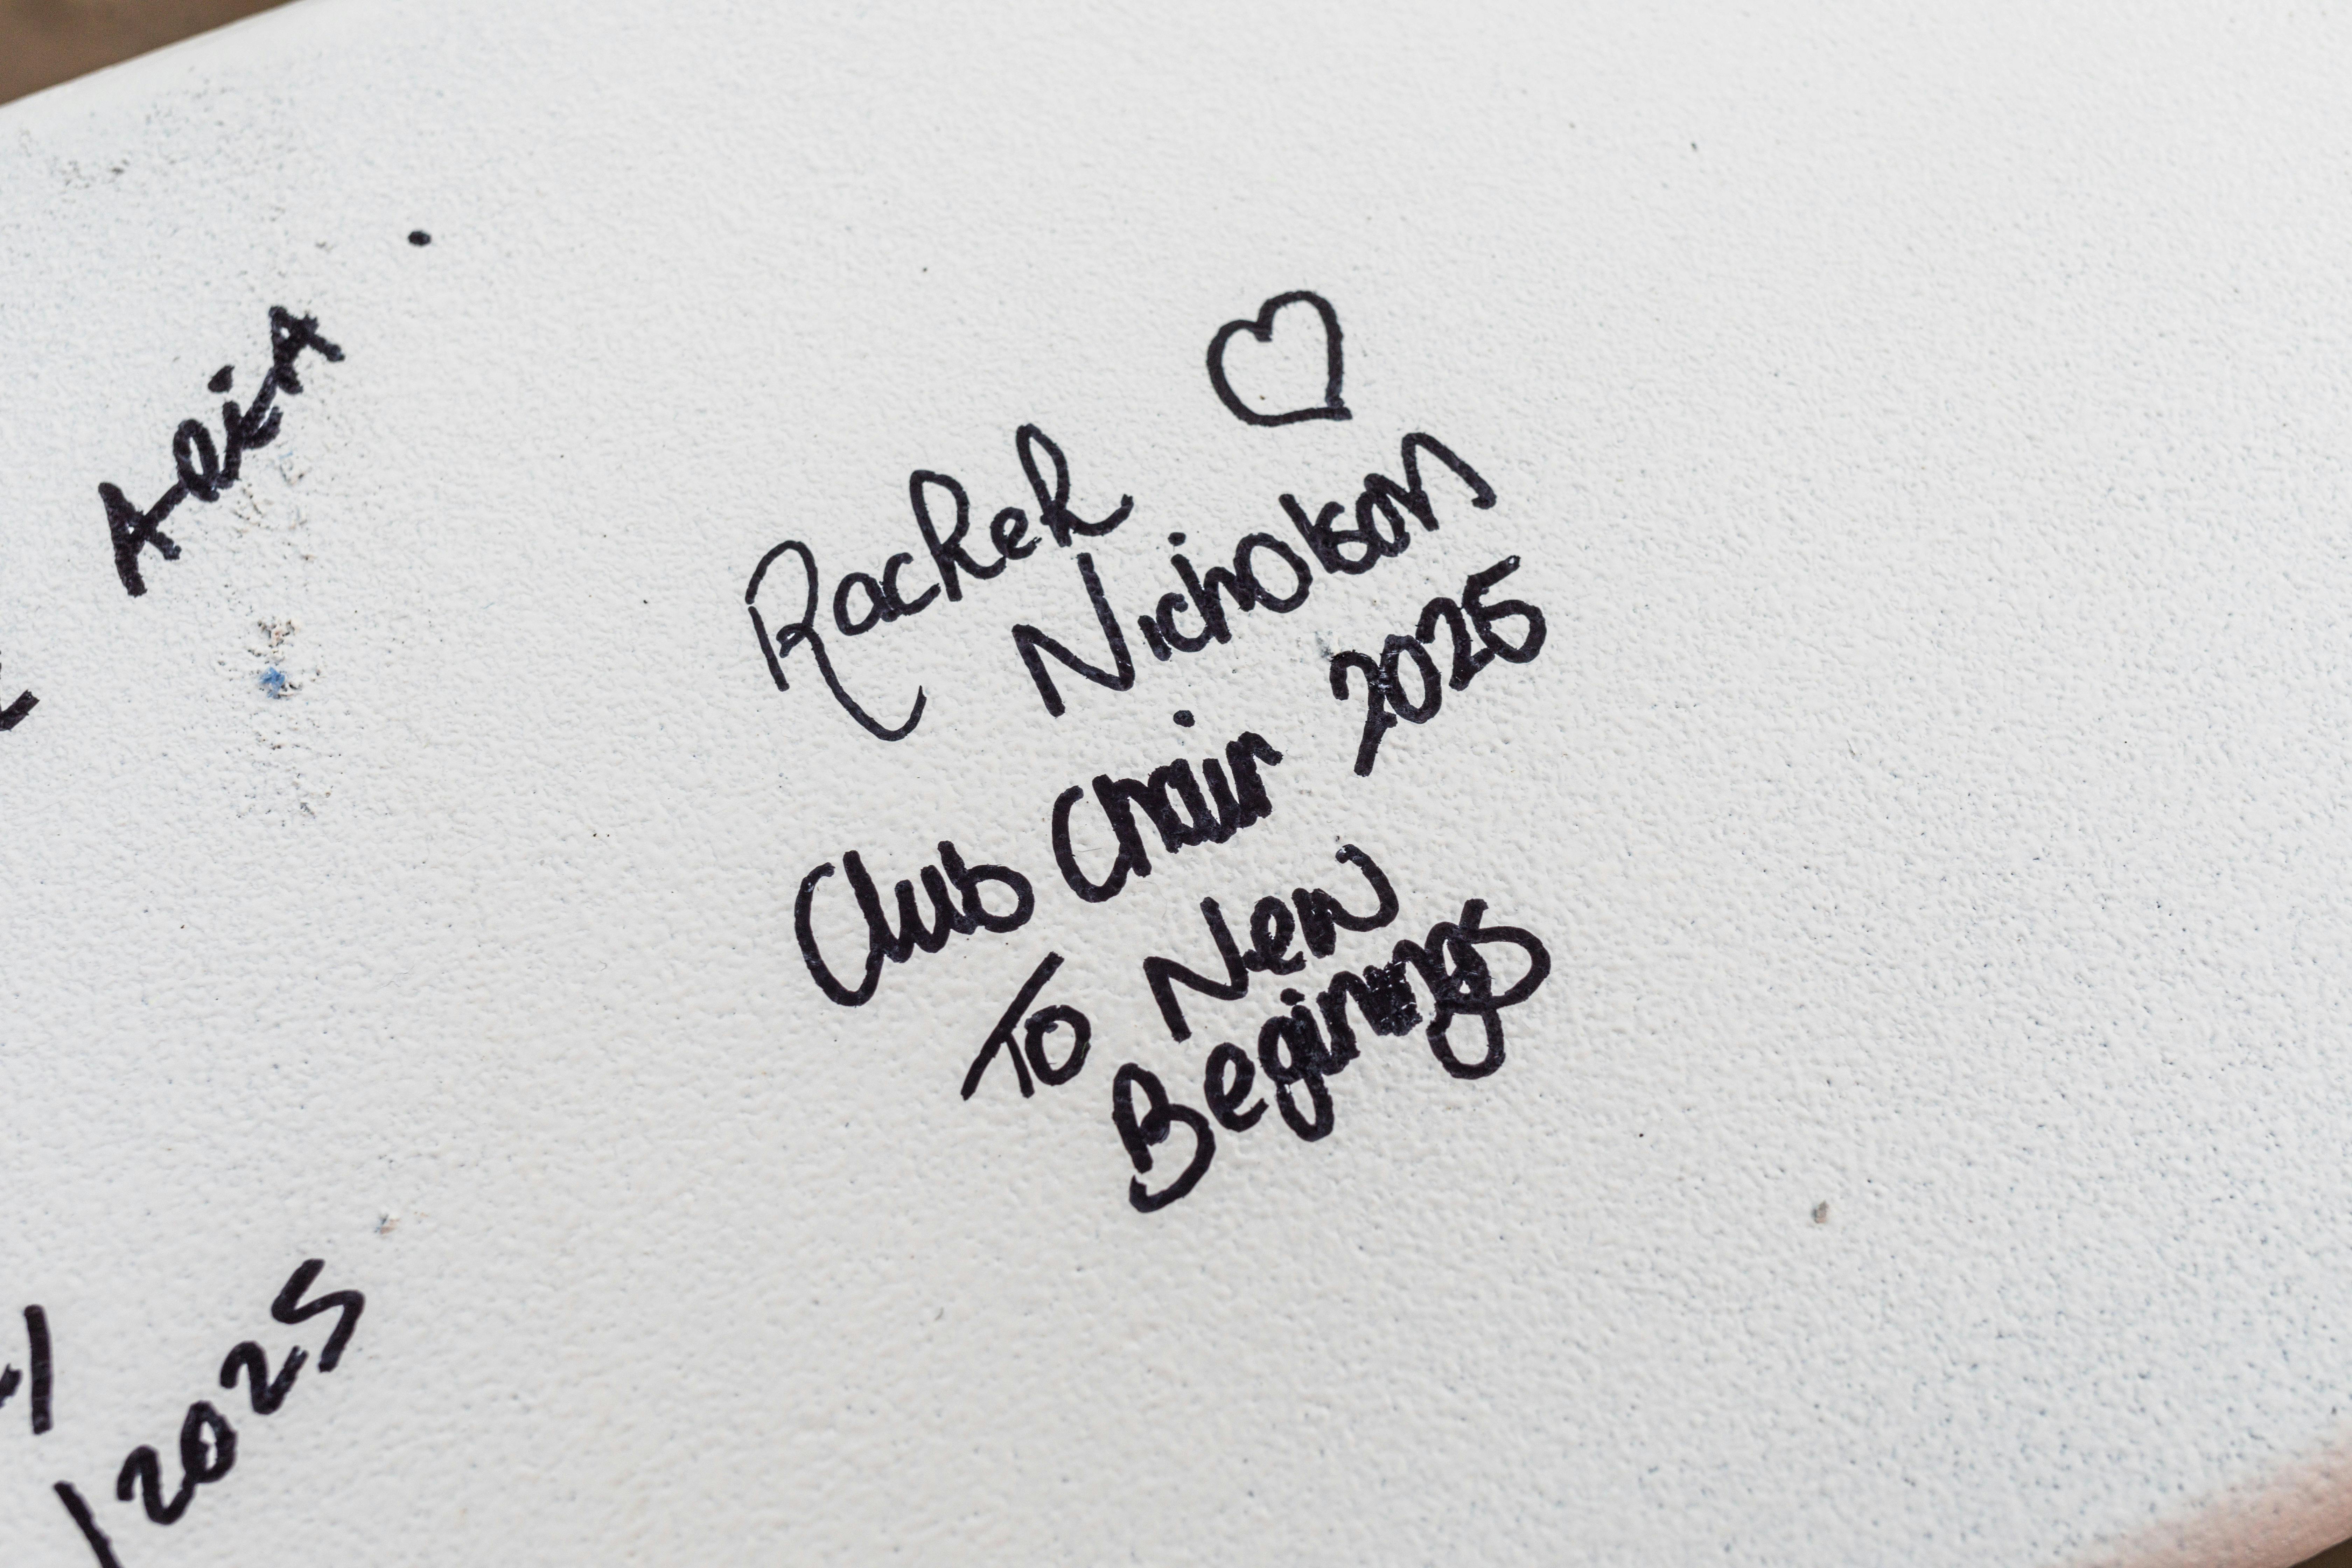 ARIA
Rachel
Nicholson
Club Chair 2025
To New
Beginings
/2025